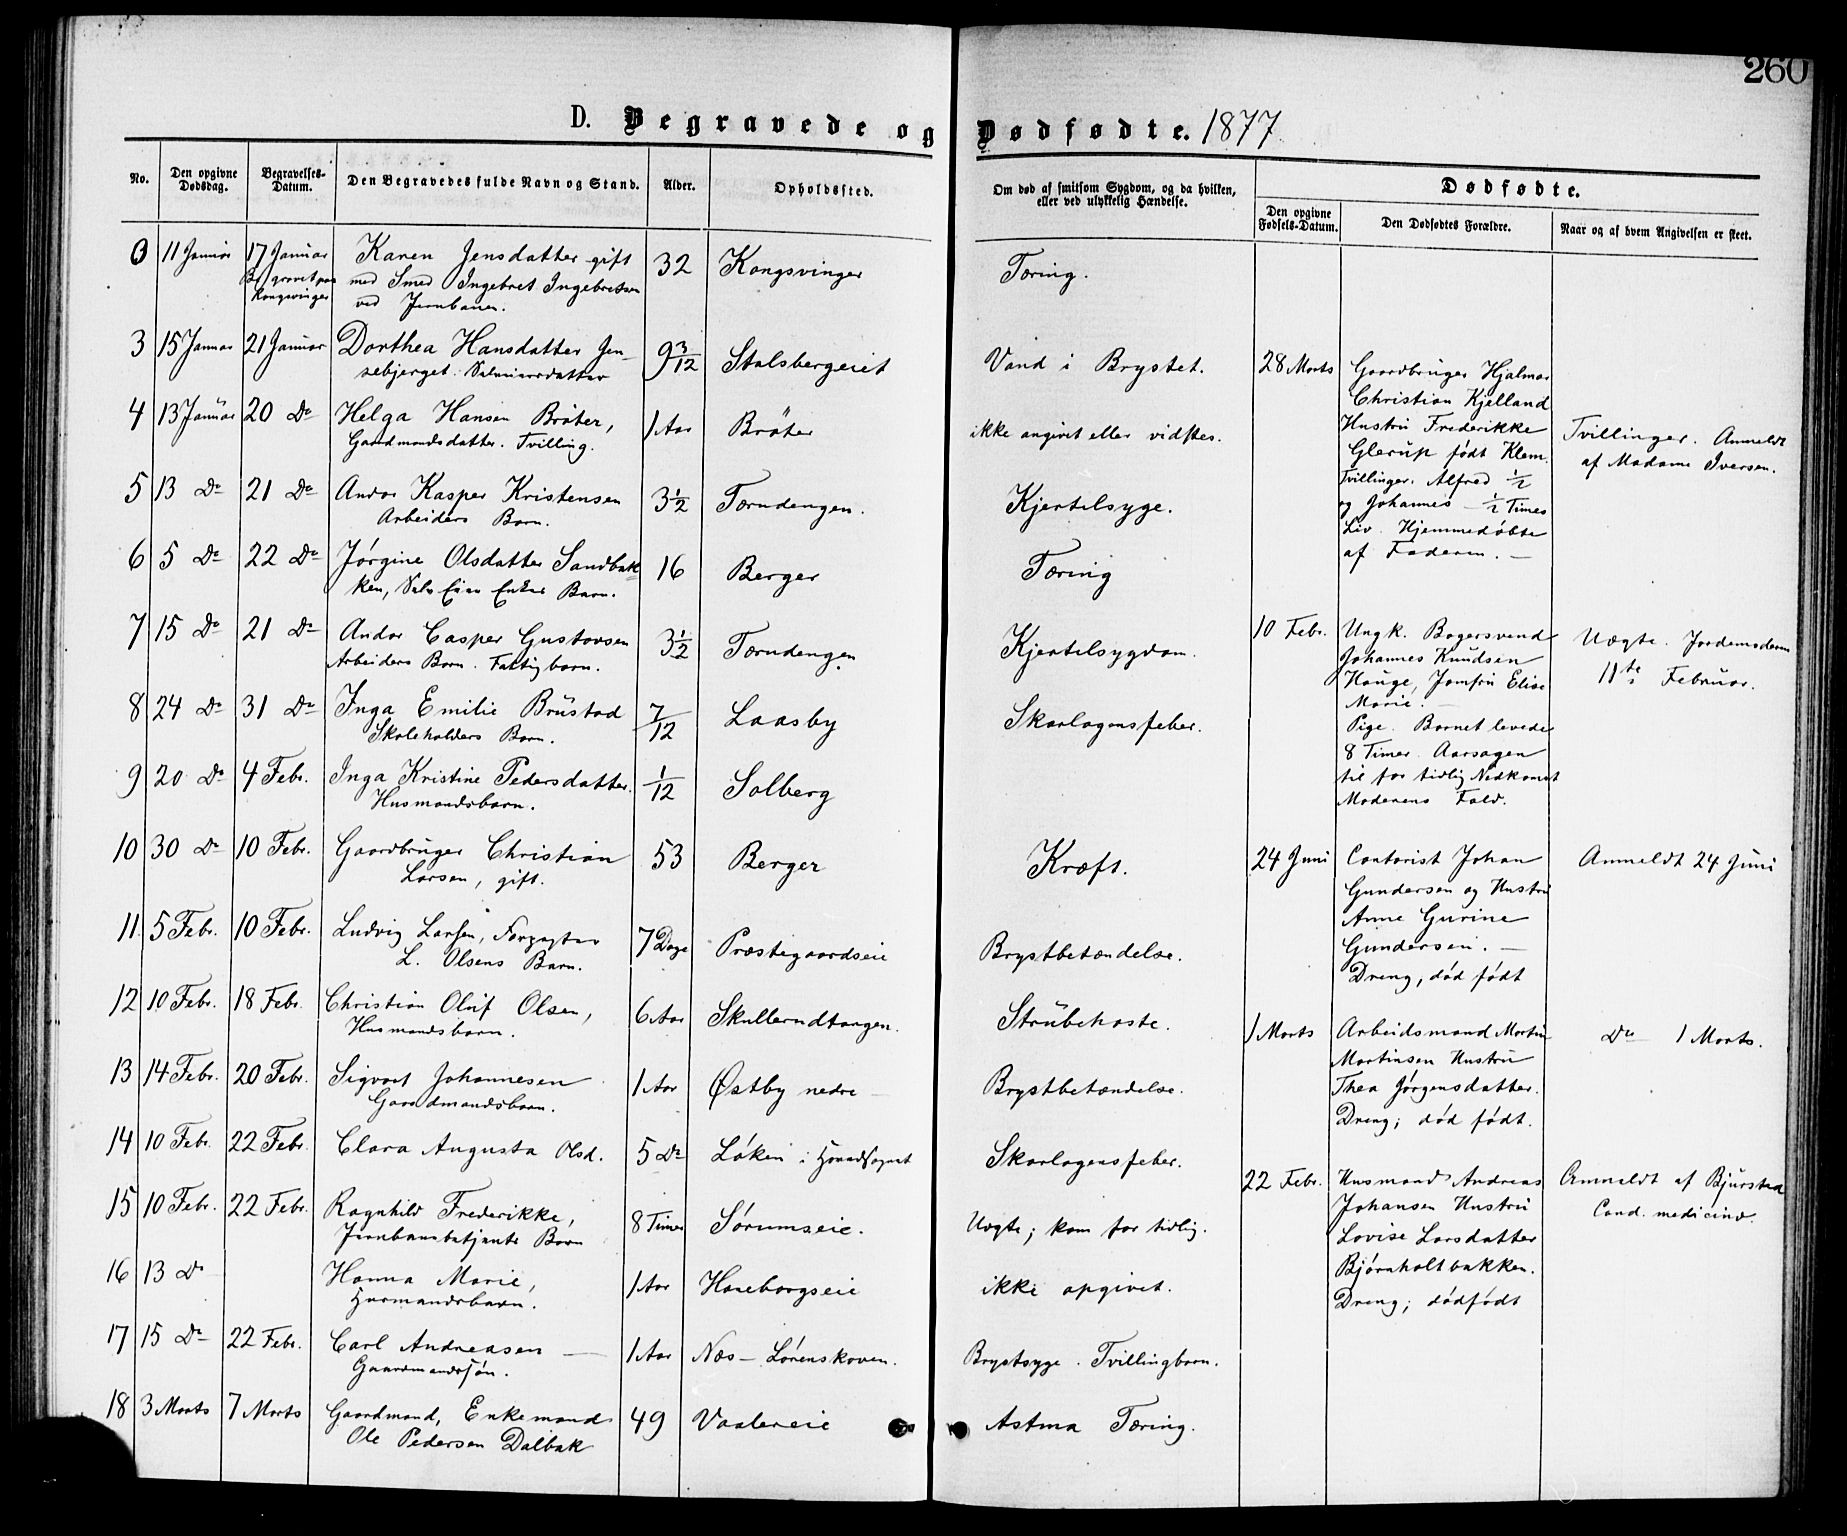 260
D. Begravede og Dødfødte. 1877.
No.
Den opgivne Dødsdag.
Begravelses-Datum.
Den Begravedes fulde Navn og Stand.
Alder.
Opholdssted.
Om død af smitsom Sygdom, og da hvilken, eller ved ulykkelig Hændelse.
Dødfødte.
Den opgivne Fødsels-Datum.
Den Dødfødtes Forældre.
Naar og af hvem Angivelsen er skeet.
0 11 Januar 17 Januar Karen Jensdatter gift 32 Kongsvinger Tæring.
Begravet paa Kongsvinger med Smed Ingebret Ingebretsen
ved Jernbanen.
3 15 Januar 21 Januar Dorthea Hansdatter Jen- 9 3/12 Stalsbergeiet Vand i Brystet.
sebjerget.
4 13 Januar 20 Do Helga Hansen Bråter, 1 Aar Bråter ikke angivet eller vidstes.
Gaardmandsdatter. Tvilling.
5 13 Do 21 Do Andor Kasper Kristensen 3 1/2 Tærudengen. Kjertelsyge.
Arbeiders Barn.
6 5 Do 22 Do Jørgine Olsdatter Sandbak- 16 Berger Tæring
ken, Enkes Barn.
7 15 Do 21 Do Andor Casper Gustavsen 3 1/2 Tærudengen Kjertelsygdom.
Arbeiders Barn. Fattigbarn.
8 24 Do 31 Do Inga Emilie Brustad 7/12 Laasby Skarlagensfeber.
Skoleholders Barn.
9 20 Do 4 Febr. Inga Kristine Pedersdatter. 1/12 Solberg
Husmandsbarn.
10 30 Do 10 Febr. Gaardbruger Christian 53 Berger Kræft.
Larsen, gift.
11 5 Febr. 10 Febr. Ludvig Larsen, Forpagter 7 Dage Præstegaardseie Brystbetændelse.
L. Olsens Barn.
12 10 Febr. 18 Febr. Christian Oluf Olsen, 6 Aar Skullerudtangen. Strubehoste.
Husmandsbarn.
13 14 Febr. 20 Febr. Sigvart Johannesen 1 Aar Østby nedre Brystbetændelse.
Gaardmandsbarn.
14 10 Febr. 22 Febr. Clara Augusta Olsd. 5 Do Løken i Skarlagensfeber.
15 10 Febr. 22 Febr. Ragnhild Frederikke, 8 Timer Sørumseie. Uægte; kom for tidlig.
Jernbanebetjents Barn
16 13 Do Hanna Marie, 1 Aar Haneborgseie ikke opgivet.
Husmandsbarn.
17 15 Do 22 Febr. Carl Andreasen 1 Aar Næs - Lørenskoven. Brystsyge. Tvillingbarn.
Gaardmandssøn.
18 3 Marts 7 Marts Gaardmand, Enkemand 49 Vaalereie Astma Tæring.
Ole Pedersen Dalbak
28 Marts Gaardbruger Hjalmar
Christian Kjelland
Hustru Frederikke
Glerup født Klem.
Tvillinger. Alfred 1/2
og Johannes 1/2 Times
Liv. Hjemmedøbte
af Faderen.
Tvillinger. Anmeldt
af Madame Iversen.
10 Febr. Ungk. Bagersvend
Johannes Knudsen
Hauge, Jomfru Elise
Marie.
Pige. Barnet levede
8 Timer. Aarsagen
til for tidlig Nedkomst
Moderens Fald.
Uægte. Jordemoderen
11te Februar.
24 Juni Contorist Johan
Gundersen og Hustru
Anne Gurine
Gundersen.
Dreng, død født
Anmeldt 24 Juni
1 Marts Arbeidsmand Martin
Martinsen Hustru
Thea Jørgensdatter.
Dreng; død født.
Do 1 Marts.
22 Febr. Husmand Andreas
Johansen Hustru
Lovise Larsdatter
Bjørnholtbakken.
Dreng; dødfødt
Anmeldt af Bjurstad
Cand. medicind.